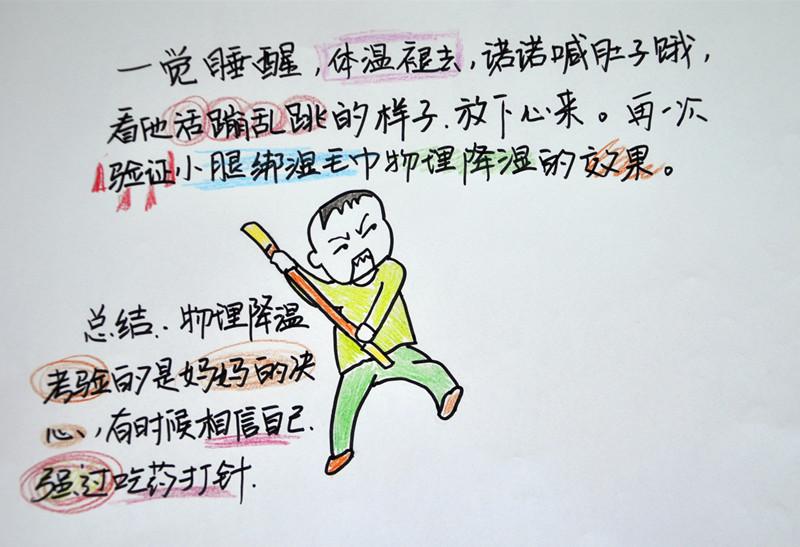 一觉睡醒，体温褪去，诺诺喊肚子饿，
看他活蹦乱跳的样子.放下心来。再一次
验证小腿绑湿毛巾物理降温的效果。
总结.物理降温
考验的是妈妈的决
心，有时候相信自己.
强过吃药打针.